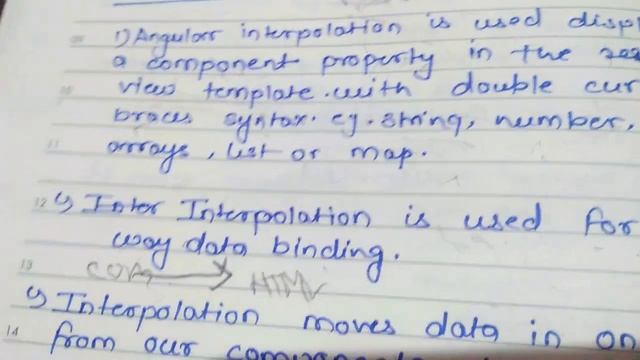 1) Angular interpolation is used displ
a component property in the
view template. with double cur
braces syntax. eg. string, number,
arrays, list or map.
12 4) Inter Interpolation is used for
way data binding.
13
HTML
4) Interpolation moves data in on
14 from our compone